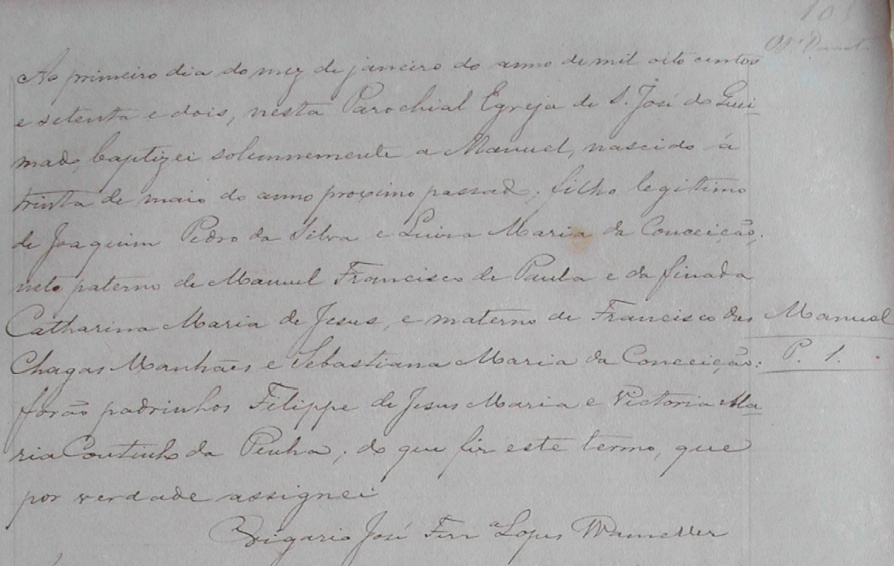 Ao primeiro dia do mez de janeiro do anno de mil oito centos
e setenta e dois, nesta Parochial Egreja de S. José do Quei-
mado, baptizei solemnemente a Manuel, nascido á
trinta de maio do anno proximo passado; filho legitimo
de Joaquim Pedro da Silva e Luiza Maria da Conceição;
neto paterno de Manuel Francisco de Paula e da finada
Catharina Maria de Jesus, e materno de Francisco das
Manuel
Chagas Manhães e Sebastiana Maria da Conceição:
P. 1.
forão padrinhos Filippe de Jesus Maria e Victoria Ma-
ria Coutinho da Penha; do que fiz este termo, que
por verdade assignei
Vigario José Ferrª Lopes